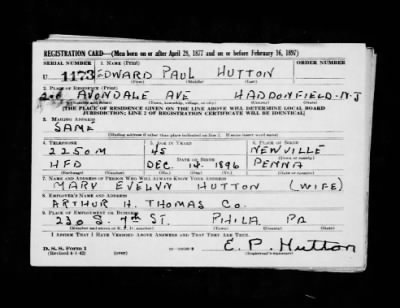 REGISTRATION CARD—(Men born on or after April 28, 1877 and on or before February 16, 1897)
SERIAL NUMBER 1. NAME (Print) ORDER NUMBER
U 1173 EDWARD PAUL HUTTON
(First) (Middle) (Last)
2. PLACE OF RESIDENCE (Print)
AVONDALE AVE HADDONFIELD N.J
(Number and street) (Town, township, village, or city) (County) (State)
[THE PLACE OF RESIDENCE GIVEN ON THE LINE ABOVE WILL DETERMINE LOCAL BOARD
JURISDICTION; LINE 2 OF REGISTRATION CERTIFICATE WILL BE IDENTICAL]
3. MAILING ADDRESS
SAME
[Mailing address if other than place indicated on line 2. If same insert word same]
4. TELEPHONE 5. AGE IN YEARS 6. PLACE OF BIRTH
2250M 45 NEWVILLE
DATE OF BIRTH
HFD DEC. 14. 1896 PENNA
7. NAME AND ADDRESS OF PERSON WHO WILL ALWAYS KNOW YOUR ADDRESS
MARY EVELYN HUTTON (WIFE)
8. EMPLOYER'S NAME AND ADDRESS
ARTHUR H. THOMAS CO.
9. PLACE OF EMPLOYMENT OR BUSINESS
230 S. 7th ST. PHILA PA
I AFFIRM THAT I HAVE VERIFIED ABOVE ANSWERS AND THAT THEY ARE TRUE.
D. S. S. Form 1
(Revised 4-1-42) (over) E. P. Hutton
(Registrant's signature)